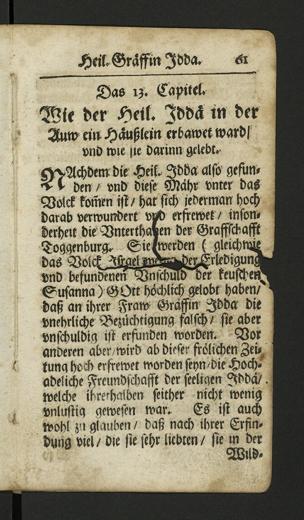 Heil. Gräffin Idda. 61
Das 13. Capitel.
Wie der Heil. Iddä in der
Auw ein Häußlein erbawet ward/
vnd wie sie darinn gelebt.
NAchdem die Heil. Idda also gefun-
den / vnd diese Mähr vnter das
Volck kom̃en ist / hat sich jederman hoch
darab verwundert vnd erfrewet / inson-
derheit die Vnterthanen der Graffschafft
Toggenburg. Sie werden ( gleichwie
das Volck Israel wegen der Erledigung
vnd befundenen Vnschuld der keuschen
Susanna ) GOtt höchlich gelobt haben /
daß an ihrer Fraw Gräffin Idda die
vnehrliche Bezüchtigung falsch / sie aber
vnschuldig ist erfunden worden. Vor
anderen aber wird ab dieser frölichen Zei-
tung hoch erfrewet worden seyn / die Hoch-
adeliche Freundschafft der seeligen Iddä /
welche ihrerhalben seither nicht wenig
vnlustig gewesen war. Es ist auch
wohl zu glauben / daß nach ihrer Erfin-
dung viel / die sie sehr liebten / sie in der
Wild-